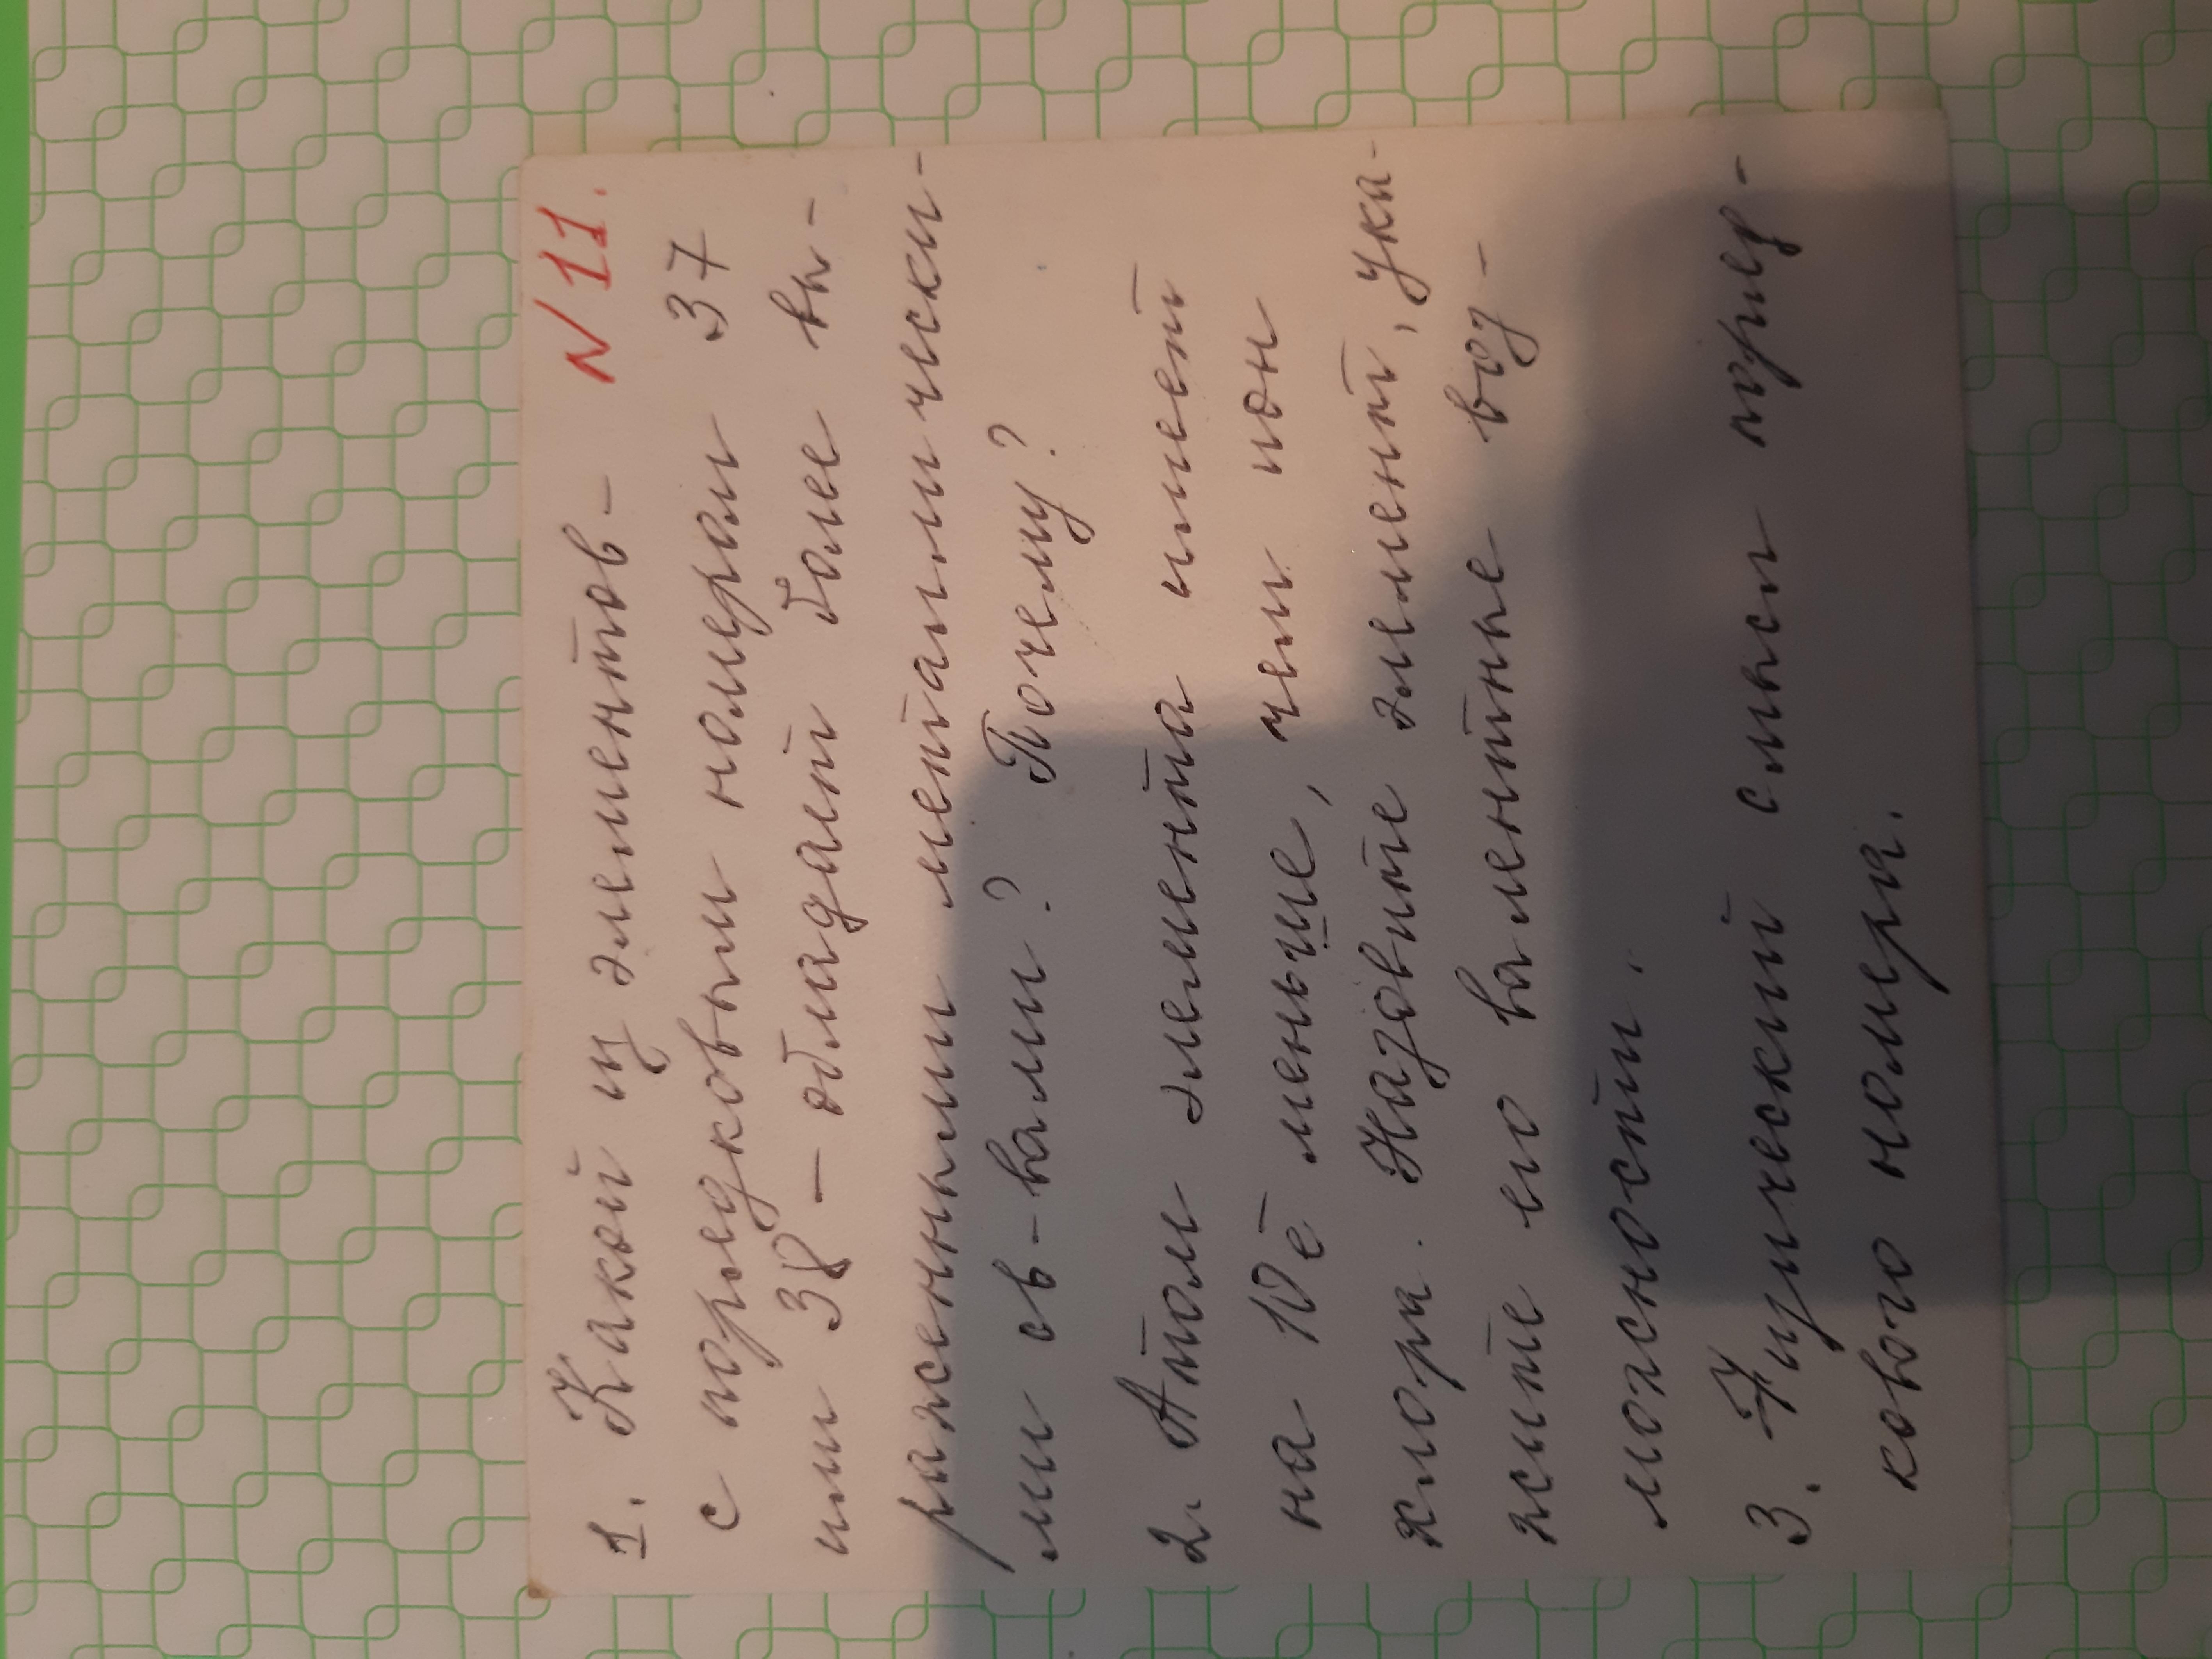 N 11.
1. Какой из элементов -
с порядковыми номерами 37
или 38 - обладает более вы-
раженными металлически-
ми св-вами? Почему?
2. Атом элемента имеет
на 10ē меньше, чем ион
хлора. Назовите элемент, ука-
жите его валентные воз-
можности.
3. Физический смысл поряд-
кового номера.